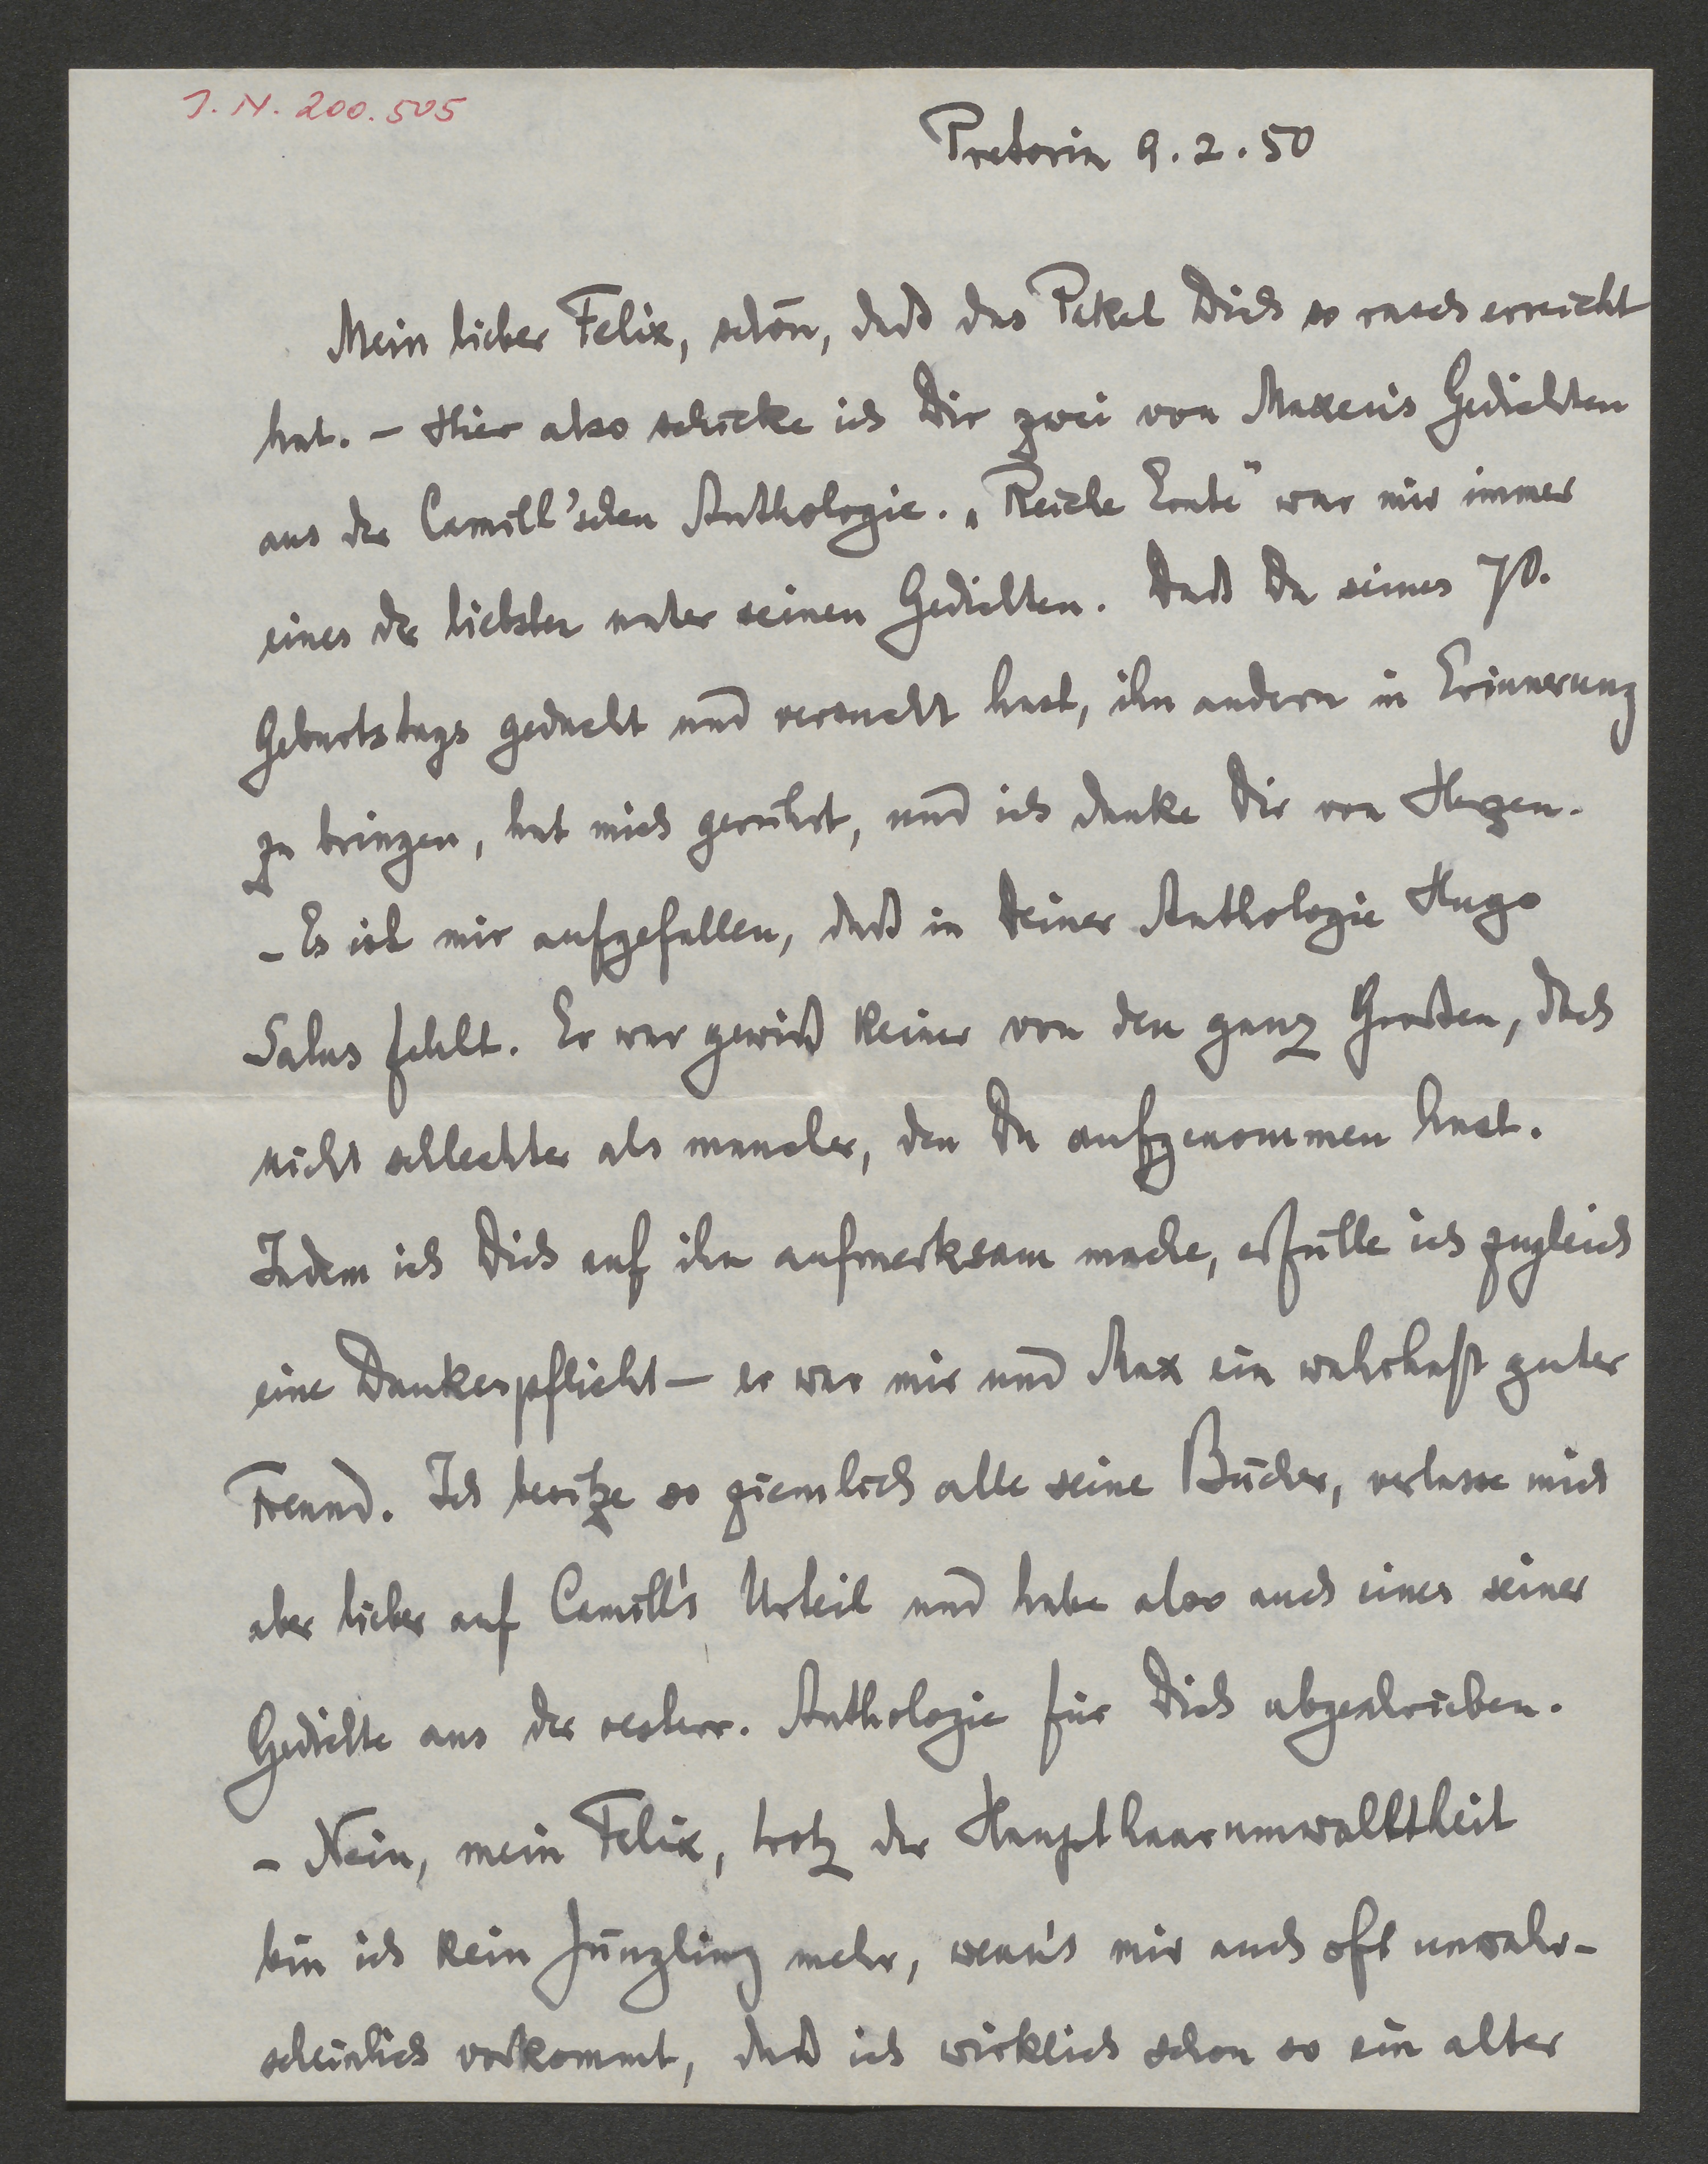 J. N. 200.505
Pretoria 9.2.50
Mein lieber Felix, schön, daß das Paket Dich so rasch erreicht
hat. – Hier also schicke ich Dir zwei von Maxens Gedichten
aus der Camill'schen Anthologie. „Reiche Ernte" war mir immer
eines der liebsten unter seinen Gedichten. Daß Du seines 70.
Geburtstags gedacht und versucht hast, ihn andern in Erinnerung
zu bringen, hat mich gerührt, und ich danke Dir von Herzen.
– Es ist mir aufgefallen, daß in Deiner Anthologie Hugo
Salus fehlt. Er war gewiß keiner von den ganz Großen, doch
nicht schlechter als mancher, den Du aufgenommen hast.
Indem ich Dich auf ihn aufmerksam mache, erfülle ich zugleich
eine Dankespflicht – er war mir und Max ein wahrhaft guter
Freund. Ich besitze so ziemlich alle seine Bücher, verlasse mich
aber lieber auf Camill's Urteil und habe also auch eines seiner
Gedichte aus der oesterr. Anthologie für Dich abgeschrieben.
– Nein, mein Felix, trotz der Haupthaarumwalltheit
bin ich kein Jüngling mehr, wenn's mir auch oft unwahr-
scheinlich vorkommt, daß ich wirklich schon so ein alter